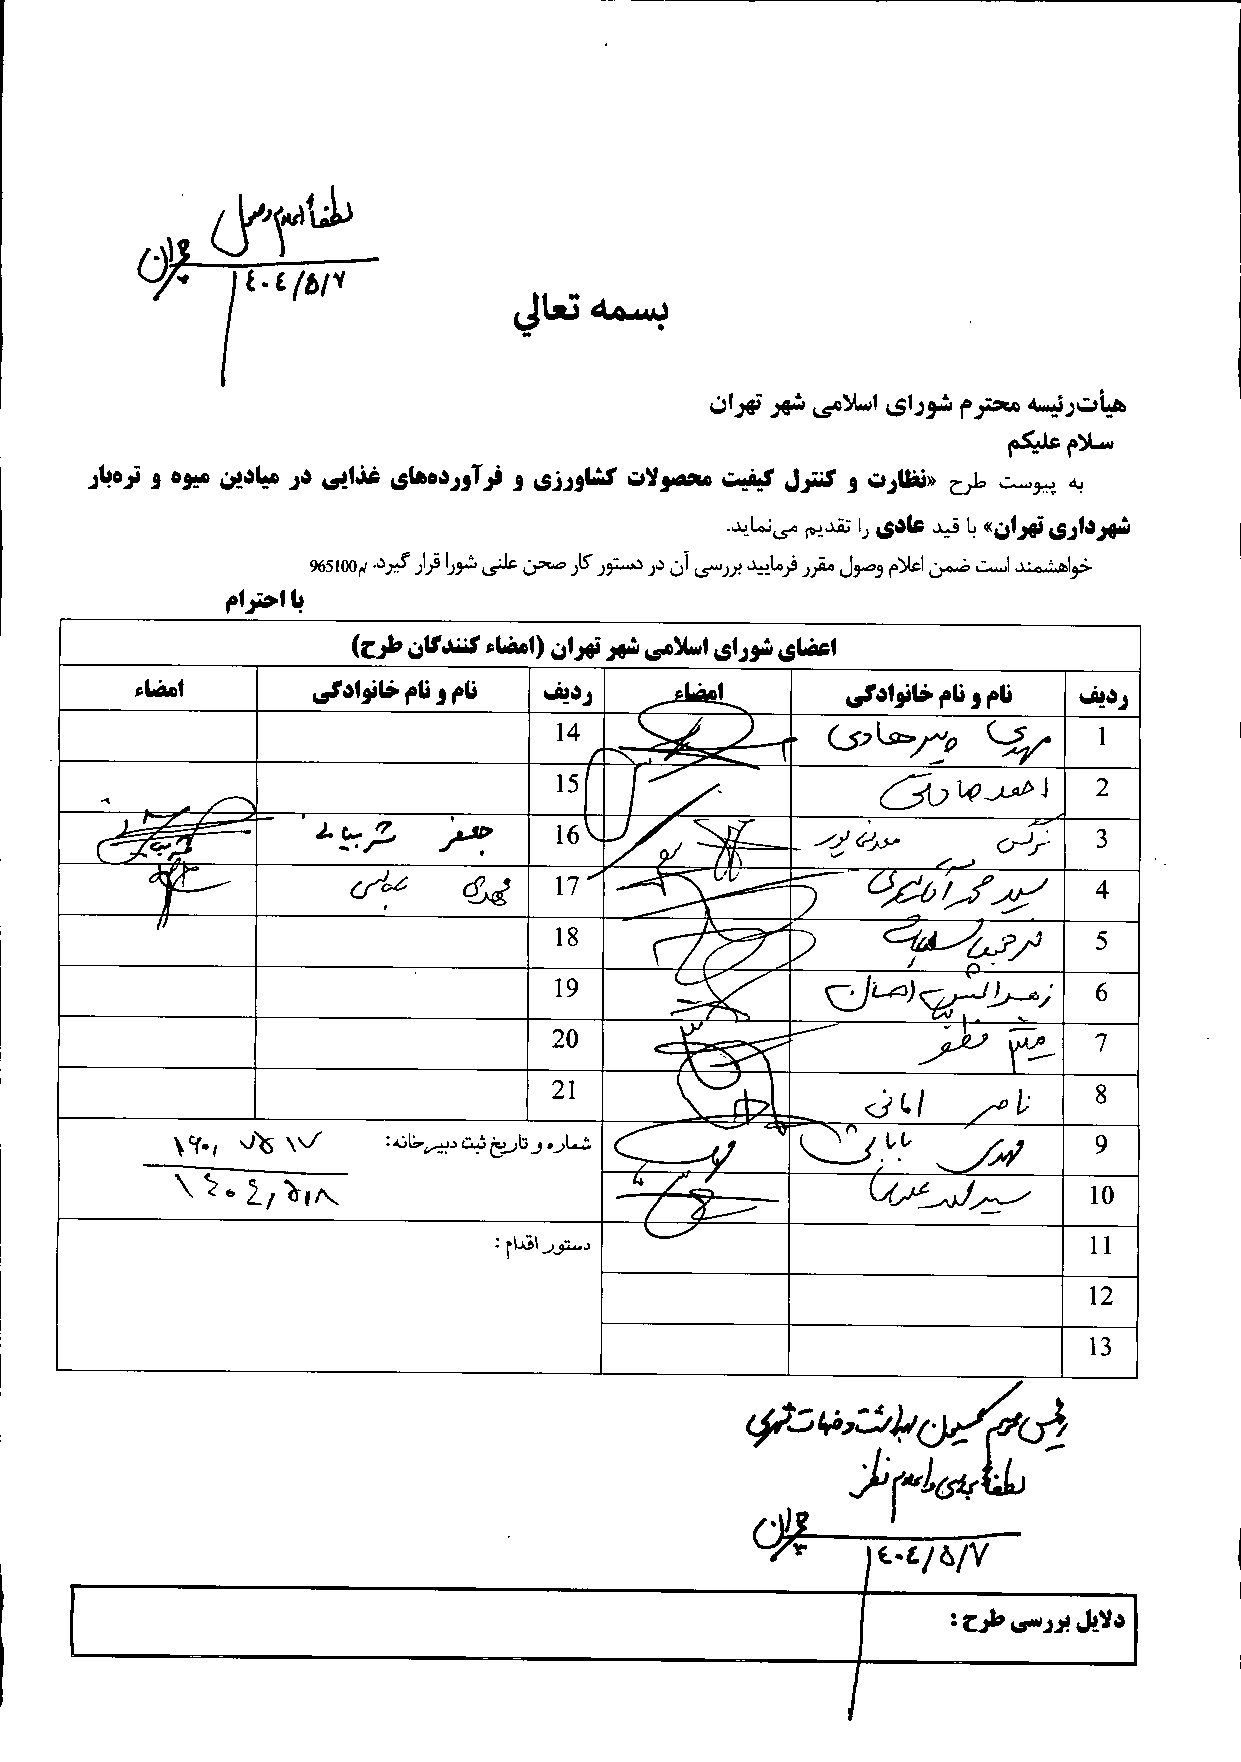 لطفاً اعلام وصول
چمران
۱۴۰۴/۵/۷
بسمه تعالي
هیأت‌رئیسه محترم شورای اسلامی شهر تهران
سلام علیکم
به پیوست طرح «نظارت و کنترل کیفیت محصولات کشاورزی و فرآورده‌های غذایی در میادین میوه و تره‌بار
شهرداری تهران» با قید عادی را تقدیم می‌نماید.
خواهشمند است ضمن اعلام وصول مقرر فرمایید بررسی آن در دستور کار صحن علنی شورا قرار گیرد. /م965100
با احترام
اعضای شورای اسلامی شهر تهران (امضاء کنندگان طرح)
ردیف نام و نام خانوادگی امضاء ردیف نام و نام خانوادگی امضاء
1 مهدی پیرهادی 14
2 احمد صادقی 15
3 نرگس معدنی پور 16 جعفر شربیانی
4 سید محمد آقامیری 17 مهدی عباسی
5 18
6 زهرا 19
7 میثم مظفر 20
8 ناصر امانی 21
9 مهدی بابایی شماره و تاریخ ثبت دبیرخانه:
۱۴۰۴/۵/۸
10 سید احمد علوی
11 دستور اقدام :
12
13
رئیس محترم کمیسیون سلامت و خدمات شهری
لطفاً بررسی و اعلام نظر
چمران
۱۴۰۴/۵/۷
دلایل بررسی طرح :